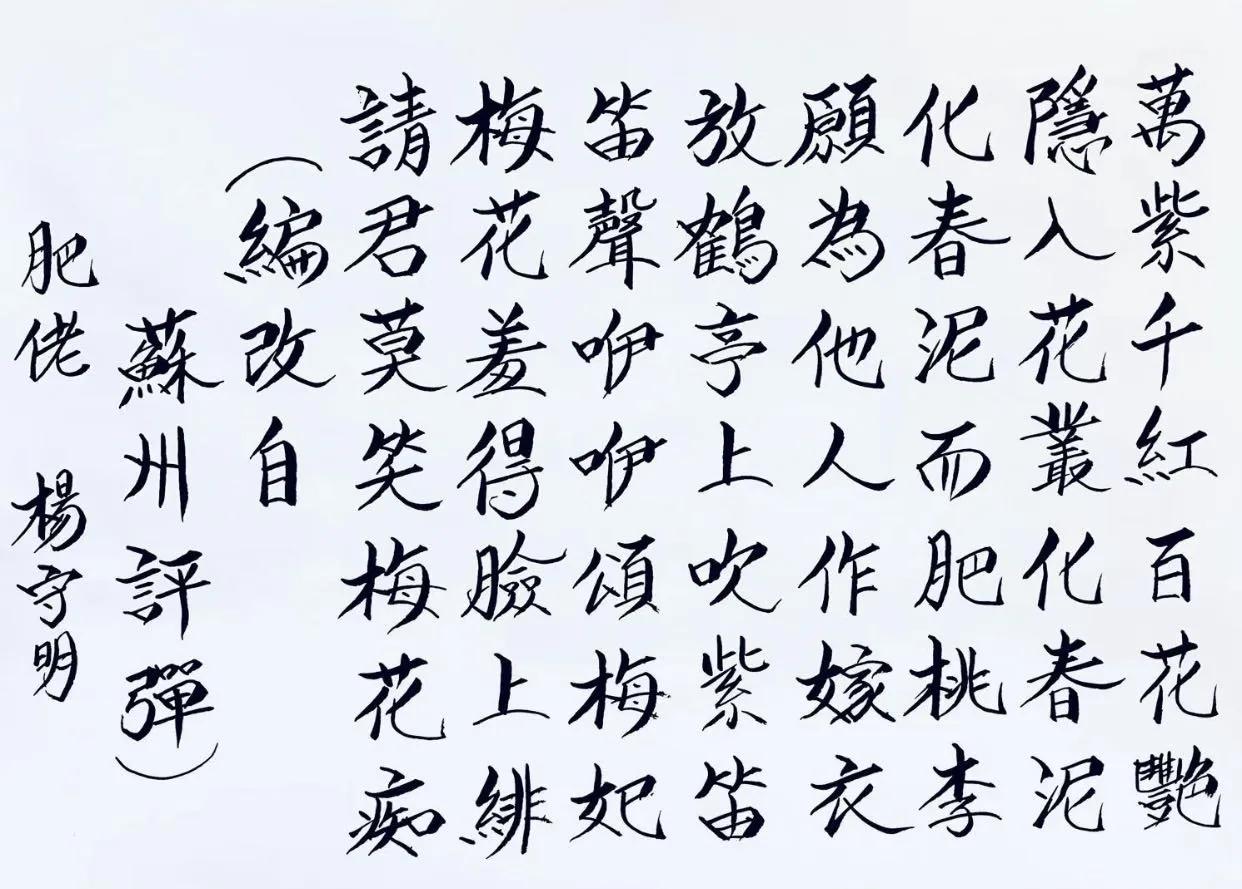 萬紫千紅百花艷
隱入花叢化春泥
化春泥而肥桃李
願為他人作嫁衣
放鶴亭上吹紫笛
笛聲咿咿頌梅妃
梅花羞得臉上緋
請君莫笑梅花痴
（編改自
蘇州評彈）
肥佬 楊守明